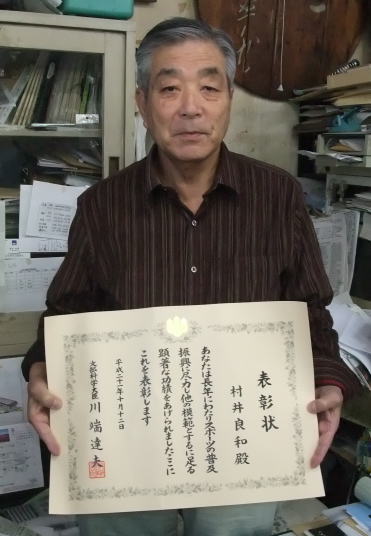 表彰状
村井良和殿
あなたは長年にわたりスポーツの普及
振興に尽力し他の模範とするに足る
顕著な功績をあげられましたここに
これを表彰します
平成二十一年十月十二日
文部科学大臣 川端達夫